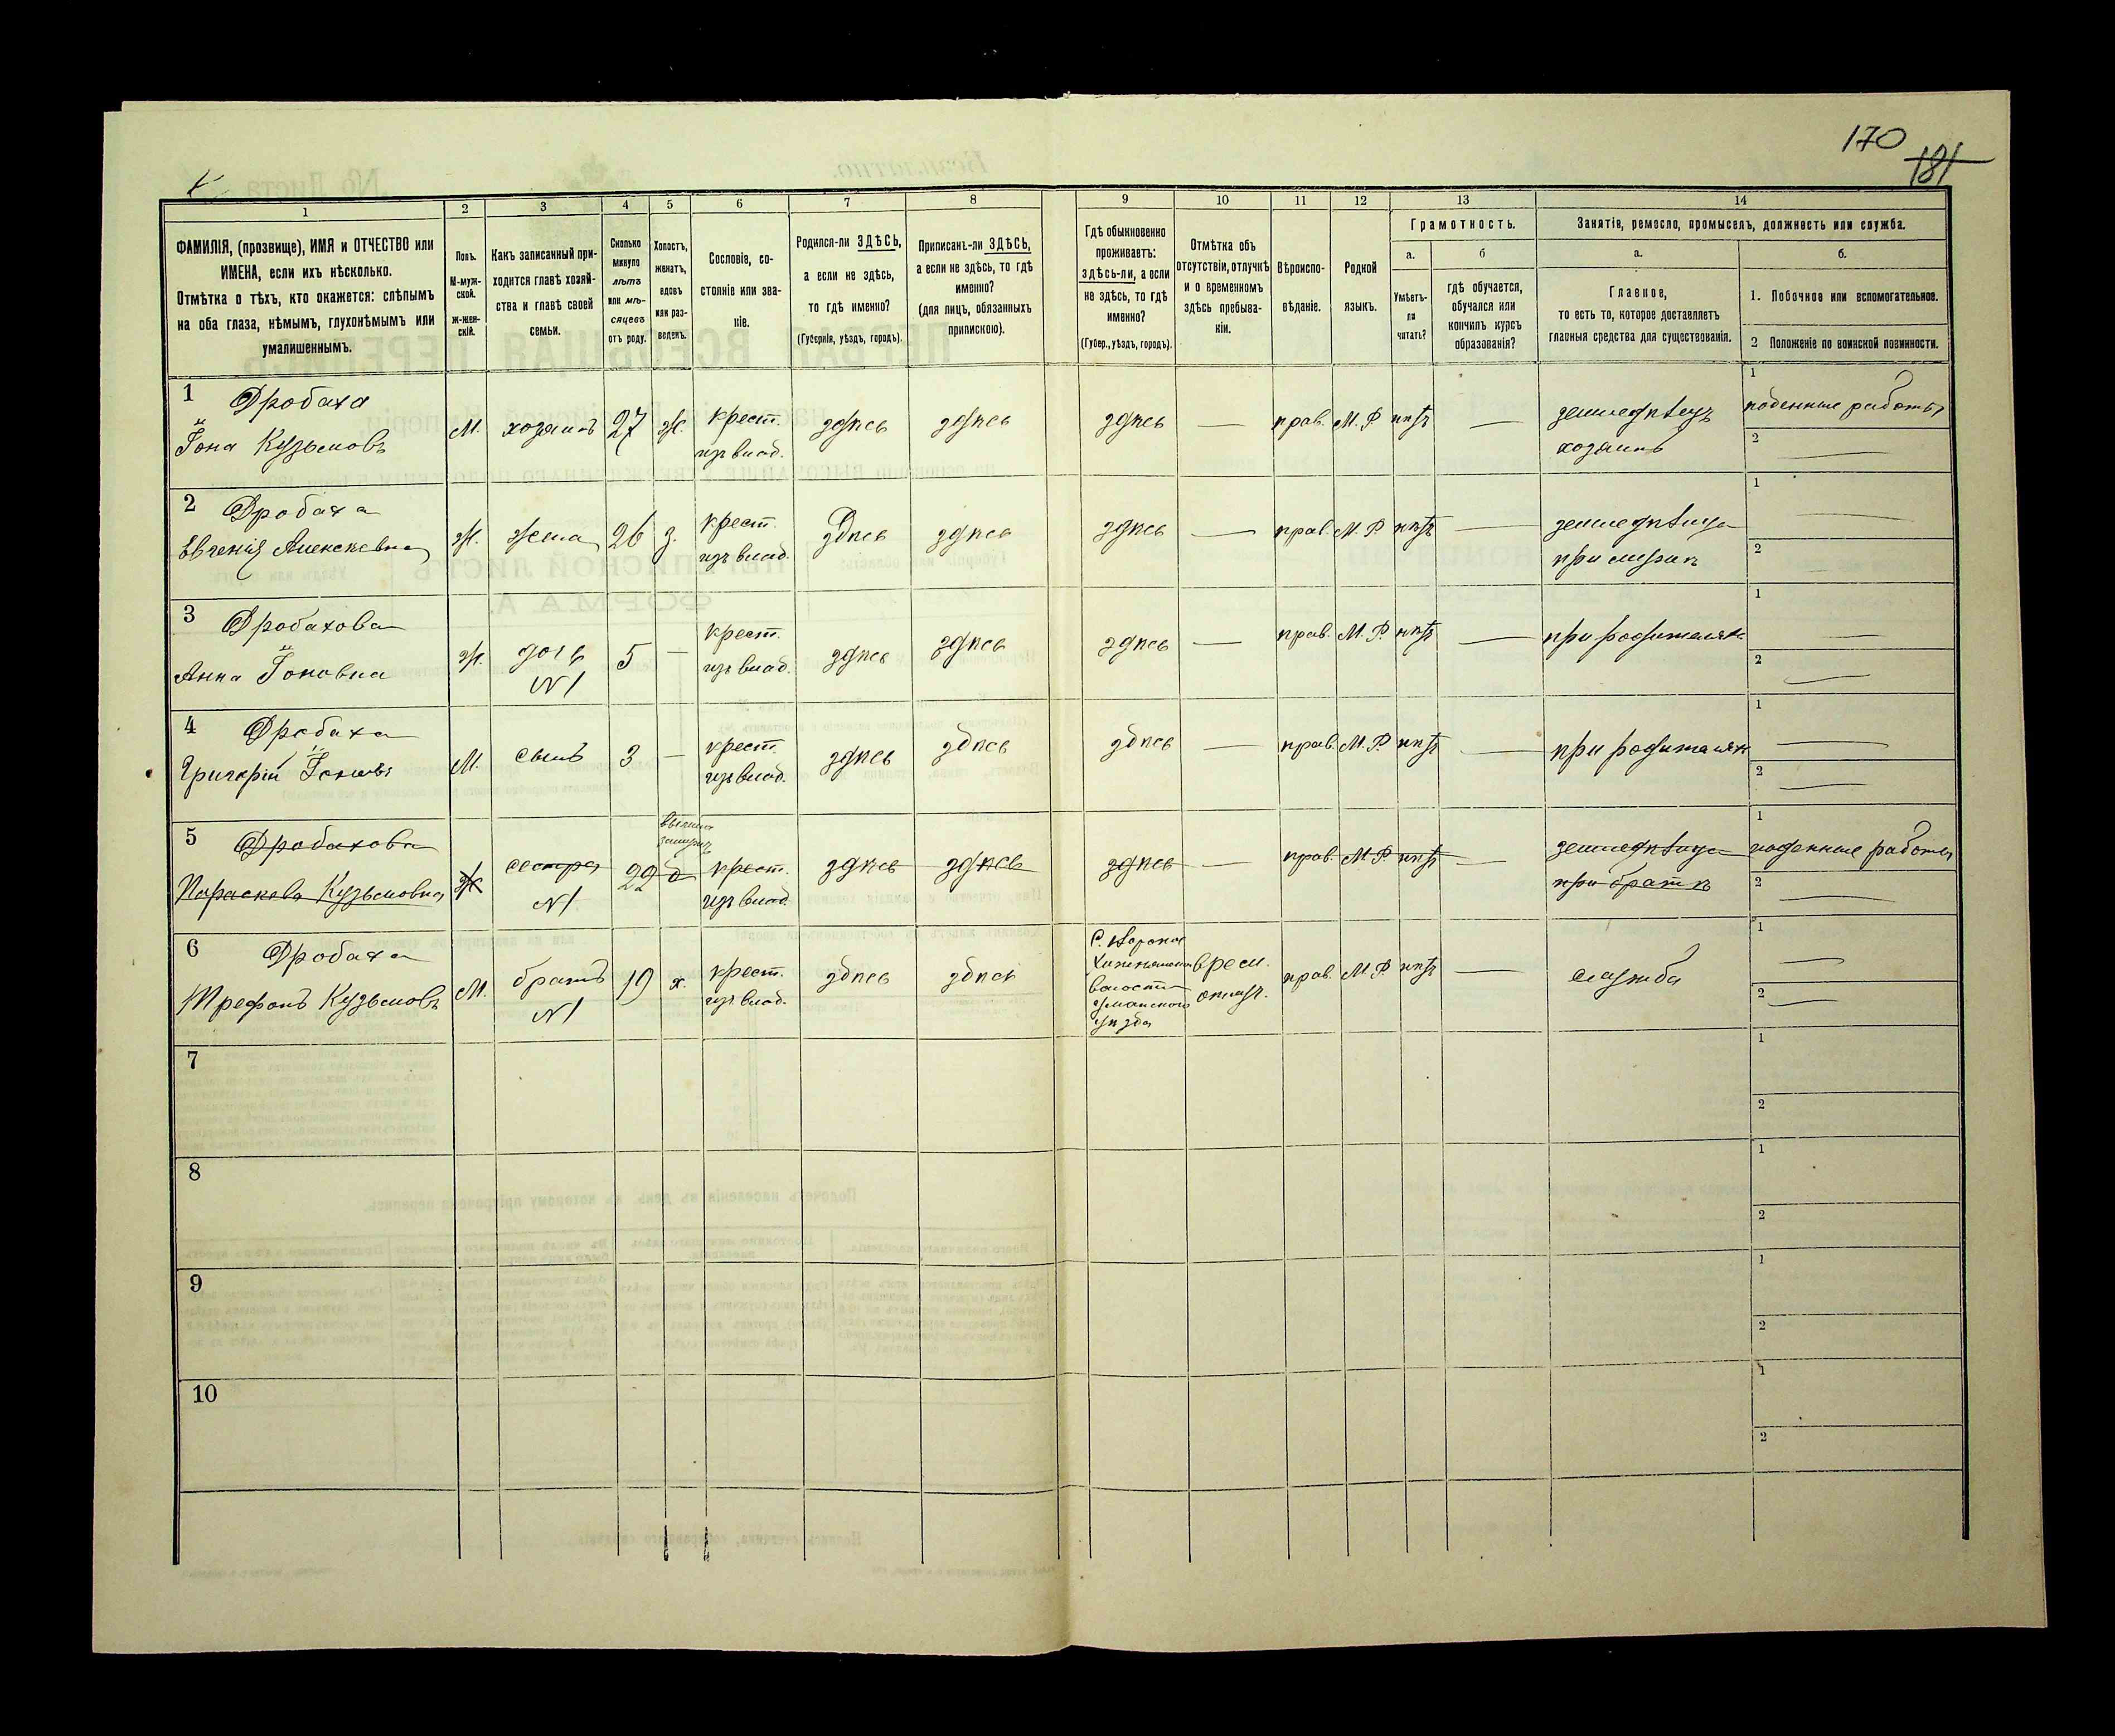 170
181
1
2
3
4
5
6
7
8
9
10
11
12
13
14
ФАМИЛІЯ, (прозвище), ИМЯ и ОТЧЕСТВО или
ИМЕНА, если ихъ нѣсколько.
Отмѣтка о тѣхъ, кто окажется: слѣпымъ
на оба глаза, нѣмымъ, глухонѣмымъ или
умалишеннымъ.
Полъ.
М-муж-
ской.
ж-жен-
скій.
Какъ записанный при-
ходится главѣ хозяй-
ства и главѣ своей
семьи.
Сколько
минуло
лѣтъ
или мѣ-
сяцевъ
отъ роду.
Холостъ,
женатъ,
вдовъ
или раз-
веденъ.
Сословіе, со-
стояніе или зва-
ніе.
Родился-ли ЗДѢСЬ,
а если не здѣсь,
то гдѣ именно?
(Губернія, уѣздъ, городъ).
Приписанъ-ли ЗДѢСЬ,
а если не здѣсь, то гдѣ
именно?
(для лицъ, обязанныхъ
припискою).
Гдѣ обыкновенно
проживаетъ:
здѣсь-ли, а если
не здѣсь, то гдѣ
именно?
(Губер., уѣздъ, городъ).
Отмѣтка объ
отсутствіи, отлучкѣ
и о временномъ
здѣсь пребыва-
ніи.
Вѣроиспо-
вѣданіе.
Родной
языкъ.
Грамотность.
а.
Умѣетъ-
ли
читать?
б
гдѣ обучается,
обучался или
кончилъ курсъ
образованія?
Занятіе, ремесло, промыселъ, должность или служба.
а.
Главное,
то есть то, которое доставляетъ
главныя средства для существованія.
б.
1. Побочное или вспомогательное.
2 Положеніе по воинской повинности.
1 Дробаха
Іона Кузьмовъ
М.
хозяинъ
27
ж.
крест.
изъ влад.
здѣсь
здѣсь
здѣсь
—
прав.
М. Р.
нѣтъ
—
земледѣлецъ
хозяинъ
1
поденные работы
2 —
2 Дробаха
Евгенія Алексѣевна
ж.
жена
26
з.
крест.
изъ влад.
здѣсь
здѣсь
здѣсь
—
прав.
М. Р.
нѣтъ
—
земледѣлица
при мужѣ
1 —
2
3 Дробахова
Анна Іоновна
ж.
дочь
N 1
5
—
крест.
изъ влад.
здѣсь
здѣсь
здѣсь
—
прав.
М. Р.
нѣтъ
—
при родителяхъ
1 —
2 —
4 Дробаха
Григорій Іоновъ
М.
сынъ
3
—
крест.
изъ влад.
здѣсь
здѣсь
здѣсь
—
прав.
М. Р.
нѣтъ
—
при родителяхъ
1 —
2 —
5 Дробахова
Параскева Кузьмовна
ж
сестра
N 1
22
вышла
замужъ
д
крест.
изъ влад.
здѣсь
здѣсь
здѣсь
—
прав.
М. Р
нѣтъ
—
земледѣлица
при братѣ
1
поденные работы
2 —
6 Дробаха
Трефонъ Кузьмовъ
М.
братъ
N 1
19
х.
крест.
изъ влад.
здѣсь
здѣсь
С.
волости
Уманского
уѣзда
врем.
отлуч.
прав.
М. Р
нѣтъ
—
служба
1 —
2 —
7
1
2
8
1
2
9
1
2
10
1
2